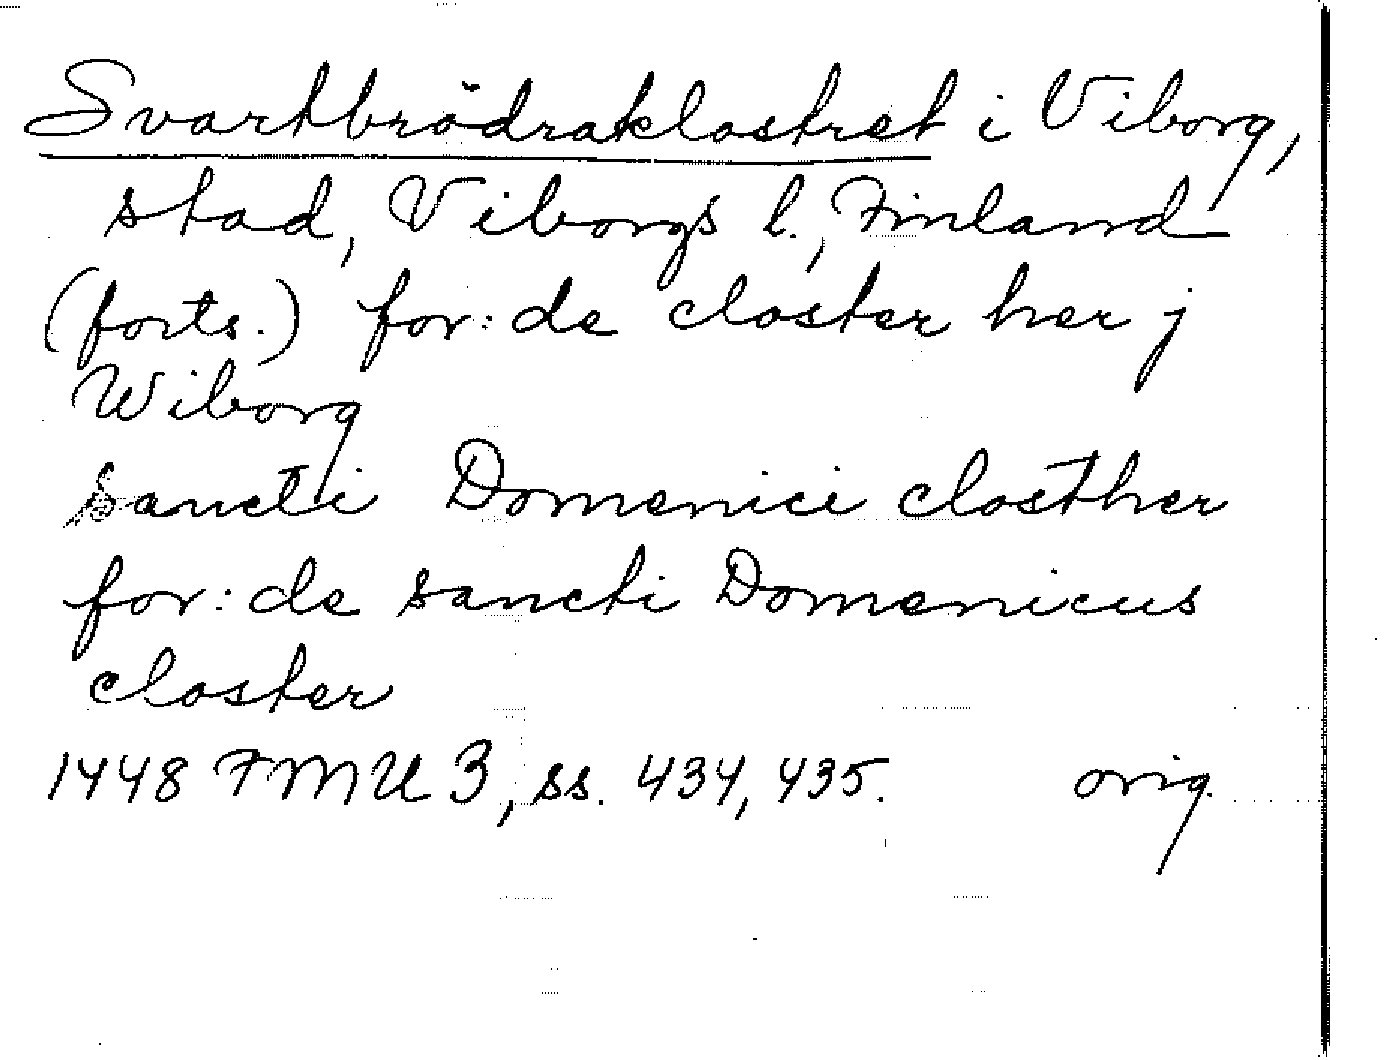 Svartbrödraklostret i Viborg,
stad, Viborgs l., Finland
(forts.) for: de closter her j
Wiborg
Sancti Domenici closther
for: de sancti Domenicus
closter
1448 FMU 3, ss. 434, 435. orig.